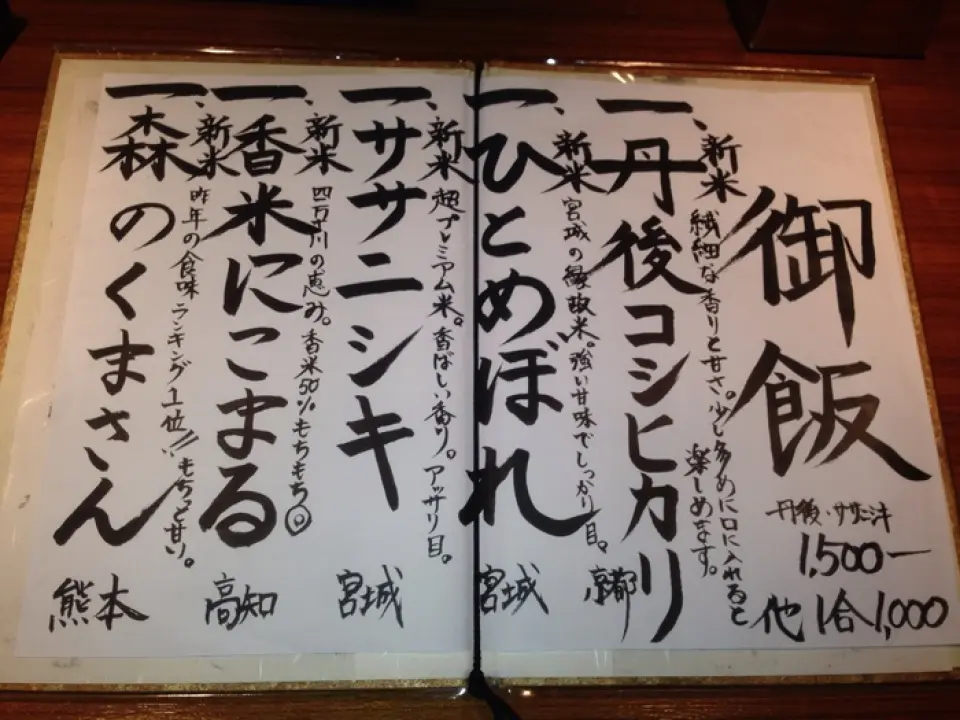 御飯
丹後・ササニシキ
1,500ー
他 1合 1,000
一、丹後コシヒカリ 京都
新米 繊細な香りと甘さ。少し多めに口に入れると
楽しめます。
一、ひとめぼれ 宮城
新米 宮城の縁故米。強い甘味でしっかり目。
一、ササニシキ 宮城
新米 超プレミアム米。香ばしい香り。アッサリ目。
一、香米にこまる 高知
新米 四万十川の恵み。香米50%もちもち◎
一、森のくまさん 熊本
新米 昨年の食味ランキング1位!! もちっと甘い。